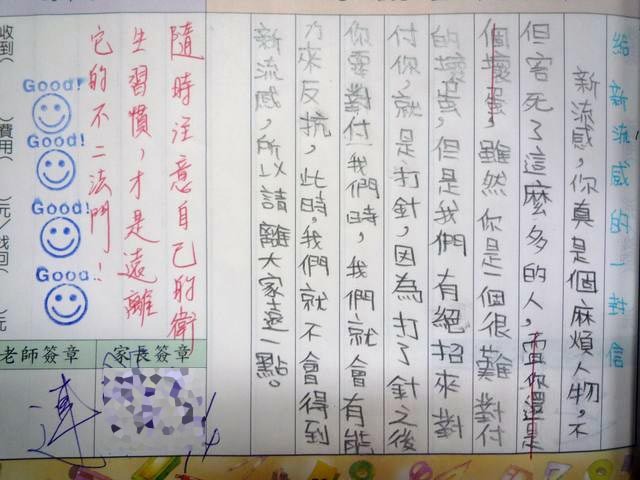 給新流感的一封信
新流感，你真是個麻煩人物，不
但害死了這麼多的人，而你還是
個壞蛋，雖然你是一個很難對付
的壞蛋，但是我們有絕招來對
付你，就是打針，因為打了針之後
你要對付我們時，我們就會有能
力來反抗，此時，我們就不會得到
新流感，所以請離大家遠一點。
隨時注意自己的衛
生習慣，才是遠離
它的不二法門！
Good!
Good!
Good!
Good!
家長簽章
老師簽章
收到(
)費用(
)元/找回(
)元